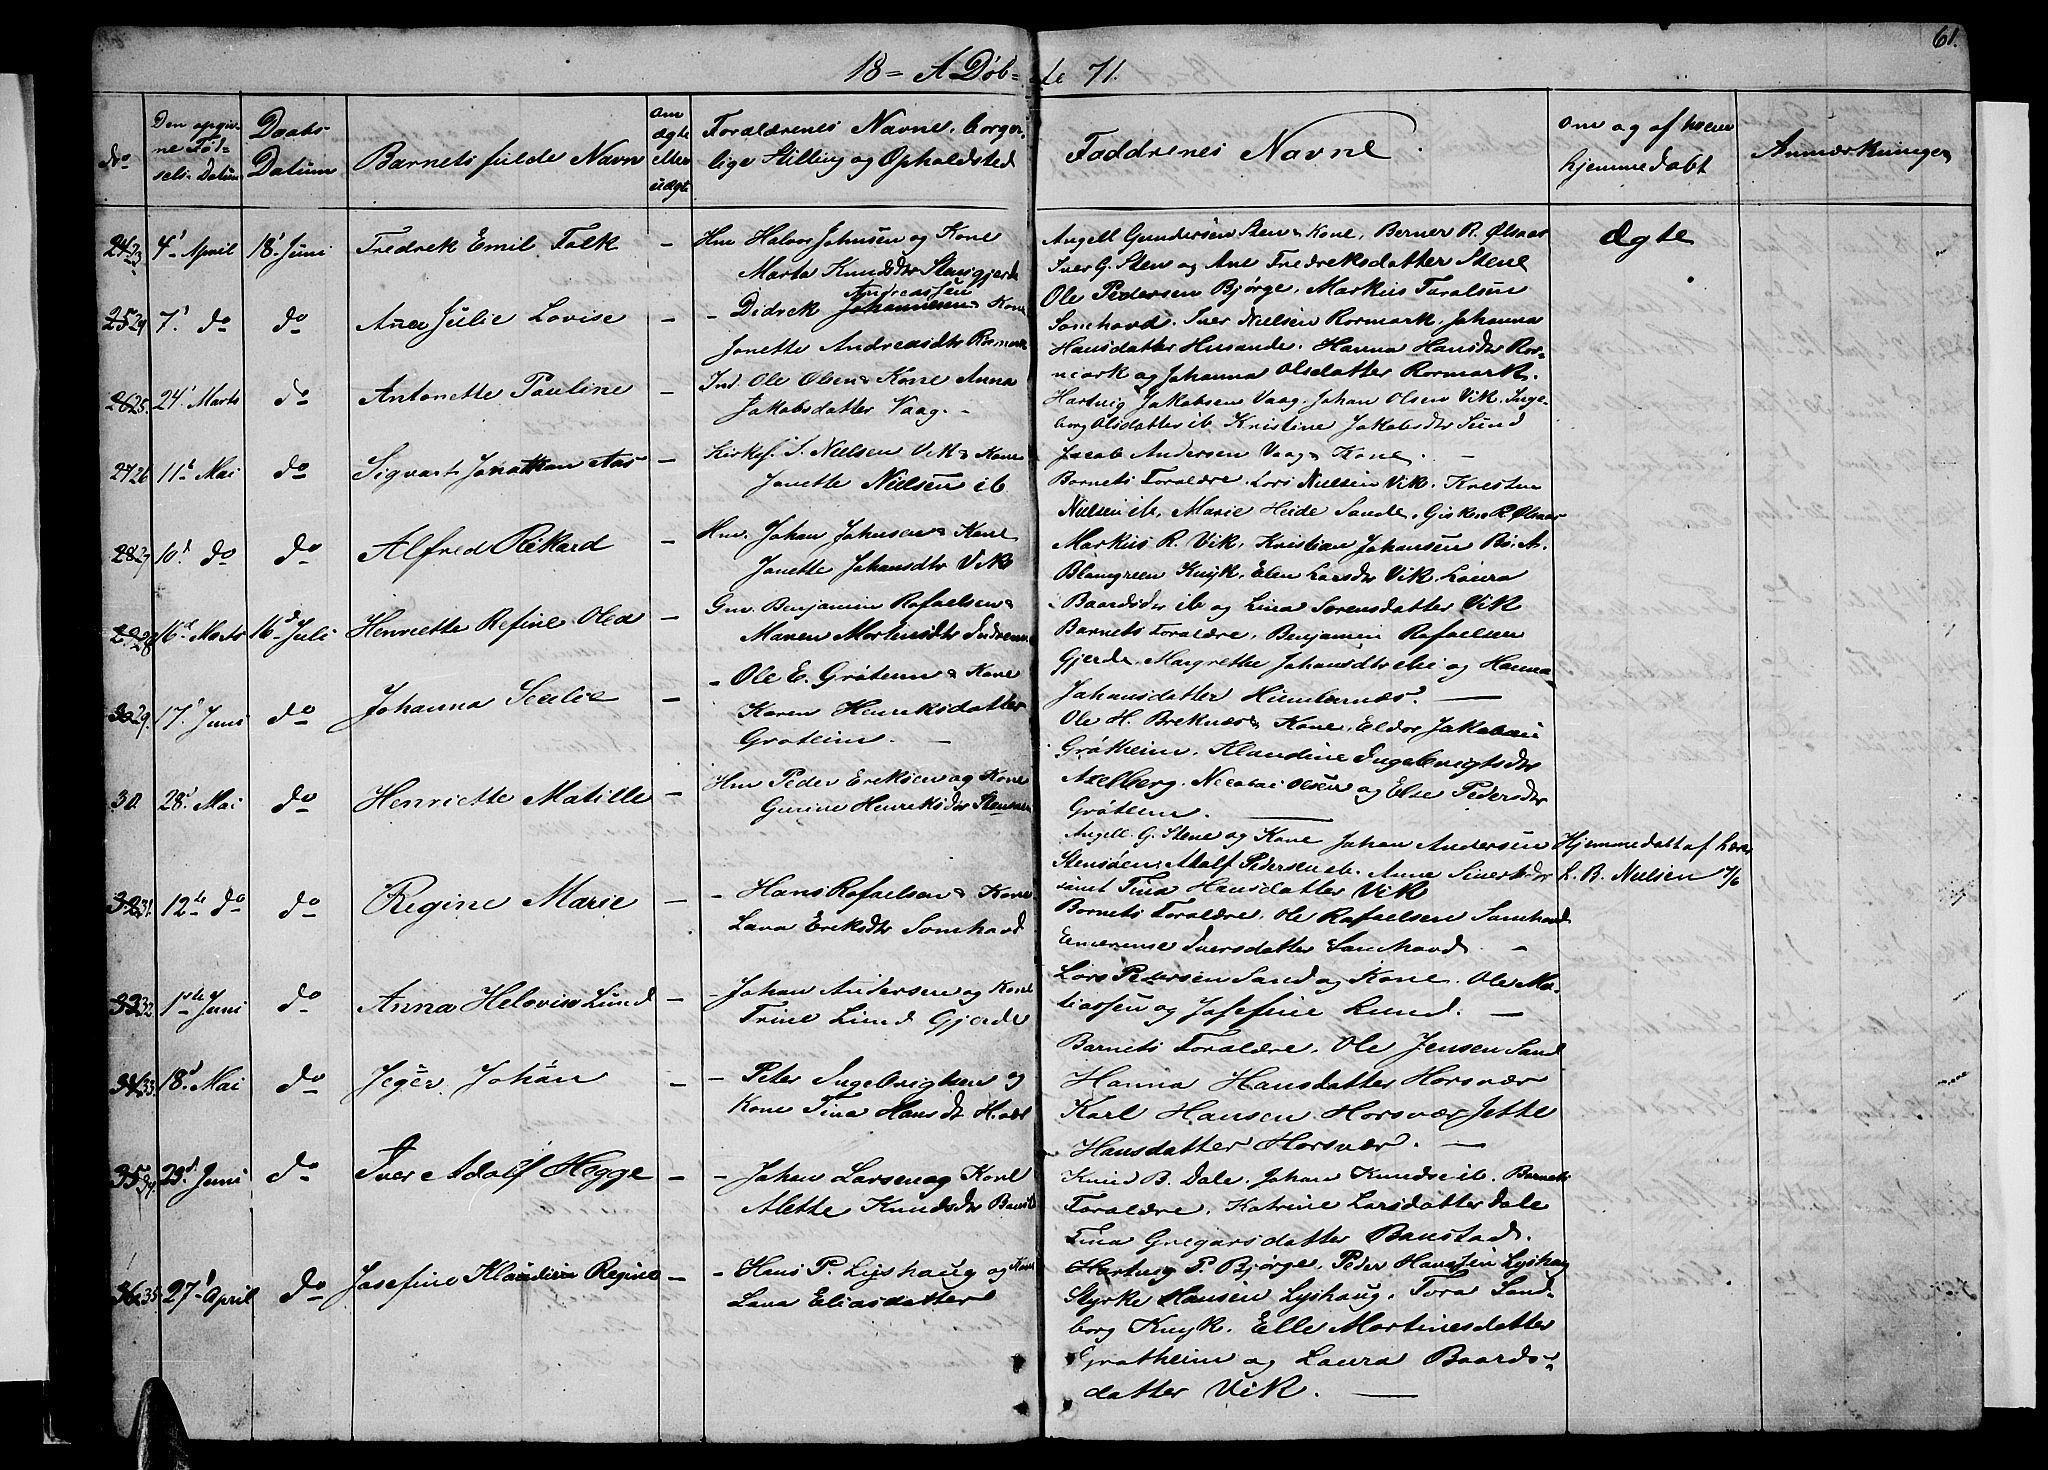 61.
18 = A Døb= te 71.
No
Den opgiv
ne Fød=
sels. Datum
Daabs-
Datum
Barnets fulde Navn
Om
ægte
eller
uægte
Forældrenes Navne, borger-
lige Stilling og Opholdsted
Faddrenes Navne.
Om og af hvem
hjemmedøbt
Anmærkninger
24 23 4' April 18' Juni Fredrek Emil Falk – Hm Halvor Johnsen og Kone
Marta Knudsdtr Stensgjerde
Angell Gundersen Sten & Kone, Berner R. Ølsaas
Iver G. Sten og Ane Fredreksdatter Stene
Ægte
25 24 7' do do Ana Julie Lovise – - Didrek Andreassen Johannesen & Kone
Jonette Andreasdtr Rormark
Ole Pedersen Bjørge, Markus Taralsen
Somhovd. Iver Nielsen Rormark, Johanna
Hansdatter Husande. Hanna Hansdtr Ror-
mark og Johanna Olsdatter Rormark.
26 25. 24' Marts do Antonette Pauline – Ind. Ole Olsen & Kone Anna
Jakobsdatter Vaag. –
Hartvig Jakobsen Vaag. Johan Olsen Vik. Inge-
borg Olsdatter ib Kristine Jakobsdtr Sund
Jacob Andersen Vaag & Kone. –
27 26 11' Mai do Sigvart Jonathan Aas – Kirkes. S. Nielsen Vik & Kone
Jonette Nielsen ib
Barnets Forældre. Lars Nielsen Vik. Kristen
Nielsen ib. Marie Heide Sande. Gisken R. Ølsaas
28 27 10' do do Alfred Rikard – Hm. Johan Johnsen & Kone
Jonette Johansdtr Vik
Markus R. Vik, Kristian Johansen Bø. A.
Blomgreen Knyk. Elen Larsdtr Vik. Laura
Baardsdtr ib og Lina Sørensdatter Vik
29 28 16d Marts 16d Juli Henriette Refine Olea – Gm. Benjamin Rafaelsen &
Maren Mortensdtr
Barnets Forældre, Benjamin Rafaelsen
Gjerde, Margrethe Johansdtr ibi og Hanna
Johansdatter Humbernæs. –
30 29. 17' Juni do Johanna – - Ole E. Grøtem & Kone
Karen Henriksdatter
Grøteim. –
Ole H. Breknæs & Kone, Eldor Jakobsen
Grøtheim. Klaudine Ingebrigtsdtr
Axelberg. Nicolai Olsen og Else Pedersdtr
Grøtem. –
30. 28' Mai do Henriette Matille – Hm Peder Eriksen og Kone
Gurine Henriksdtr Stensøen
Angell. G. Stene og Kone Johan Andersen
Stensøen. Adolf Pedersen ib. Anne Sivertsdtr
samt Tina Hansdatter Vik
Hjemmedøbt af Lærer
L. B. Nielsen 7/6
32 31. 12te do do Regine Marie – - Hans Rafaelsen & Kone
Lava Eriksdtr Somhovd
Barnets Forældre, Ole Rafaelsen Somhovd
Emerense Iversdatter Somhovd –
33 32 1ste Juni do Anna Helovin Lund – - Johan Andersen og Kone
Trine Lund Gjerde
Lars Pedersen Sand og Kone. Ole Ma-
tiassen og Josefine Lund. –
34 33. 18' Mai do Jeger Johan – - Peter Ingebrigtsen og
Kone Tina Hansdtr
Barnets Forældre. Ole Jensen Sand
Hanna Hansdatter Horsvær
Karl Hansen Horsvær Jette
Hansdatter Horsvær. –
35 34. 23' Juni do Iver Adolf Hegge – - Johan Larsen og Kone
Alette Knudsdtr
Knud B. Dale. Johan Knudsen ib. Barnets
Forældre. Katrine Larsdatter Dale
Tina Gregarsdatter Banstad.
36 35. 27' April do Josefine Klaudine Regine – - Hans P. Lyshaug og Kone
Lava Eliasdatter
Hartvig P. Bjørge. Peder Hansen Lyshaug
Styrke Hansen Lyshaug. Tora Sand-
borg Knyk. Elle Martinesdatter
Grøtheim og Laura Baards-
datter Vik. –